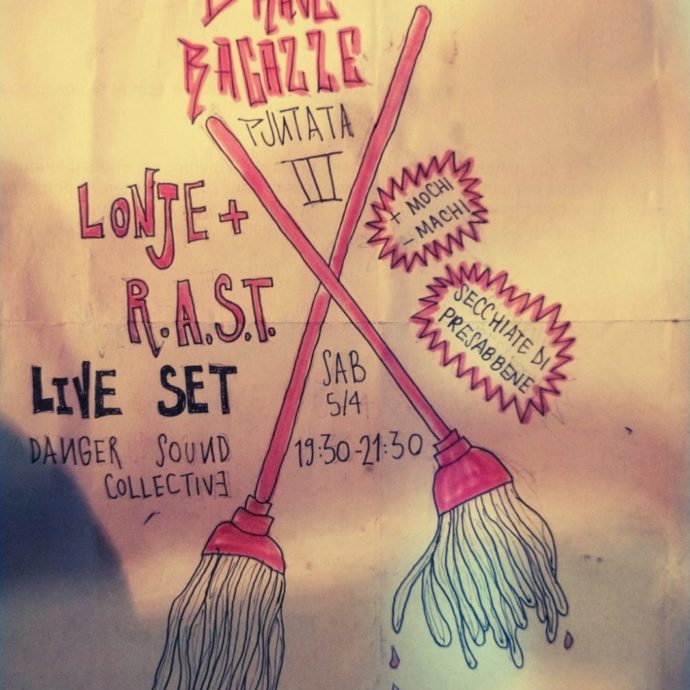 BRAVE
RAGAZZE
PJUTATA
III
LONJE +
R.A.S.T.
LIVE SET
DANGER SOUND
COLLECTIVE
+ MOCHI
- MACHI
SECCHIATE DI
PRESABBENE
SAB
5/4
19:30-21:30